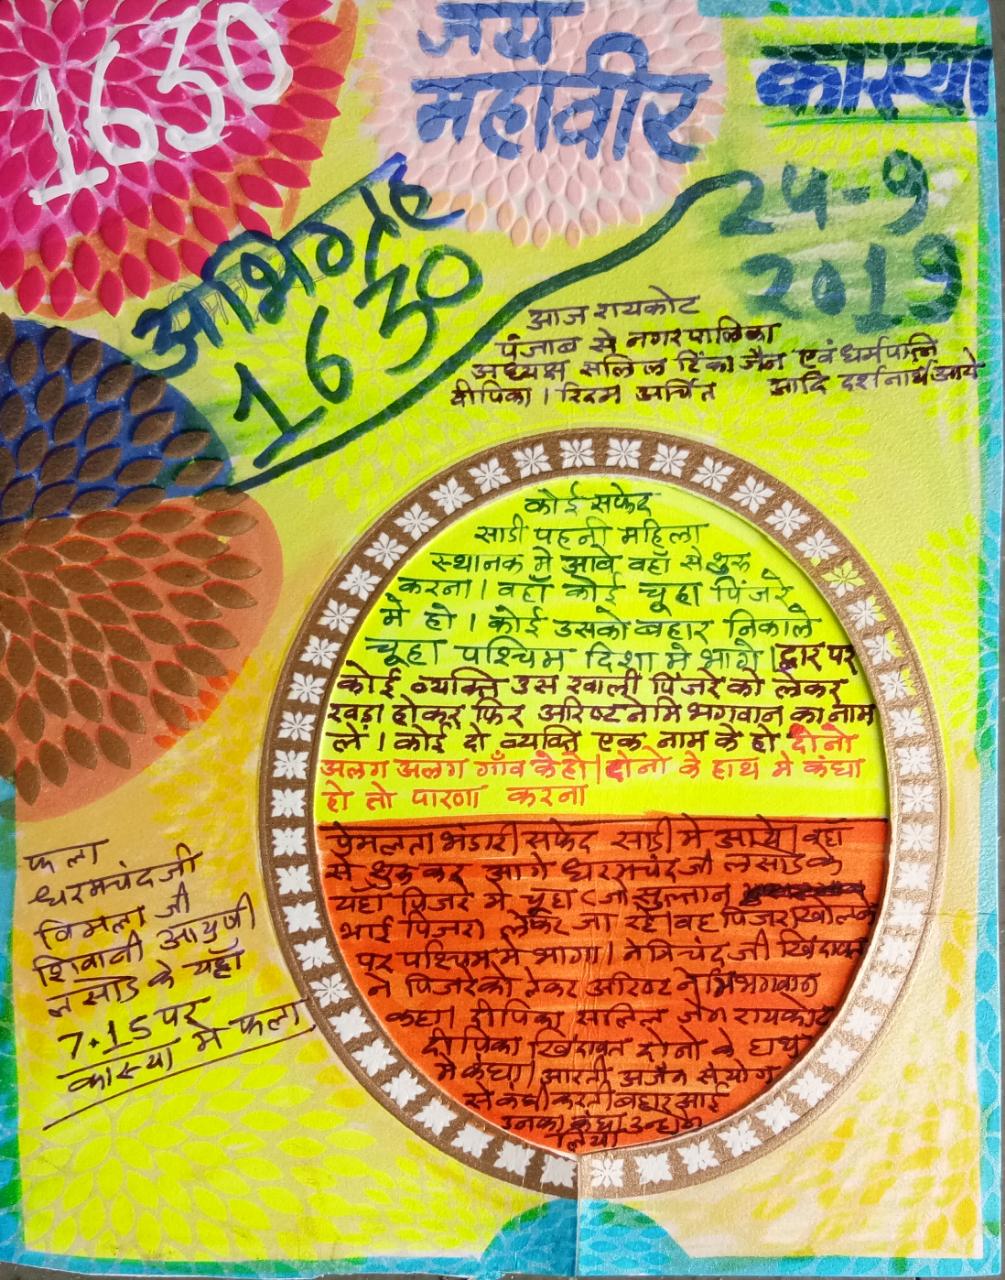 1630
जय
महावीर
कास्या
24-9
2019
अभिग्रह
1630
आज रायकोट
पंजाब से नगरपालिका
अध्यक्ष सलिल टिंका जैन एवं धर्मपत्नि
दीपिका। रिदम अर्चित आदि दर्शनार्थ आये
कोई सफेद
साडी पहनी महिला
स्थानक मे आवे वहाँ से शुरू
करना। वहाँ कोई चूहा पिंजरे
मे हो। कोई उसको बहार निकाले
चूहा पश्चिम दिशा मे भागे। द्वार पर
कोई व्यक्ति उस खाली पिंजरे को लेकर
खड़ा होकर फिर अरिष्टनेमि भगवान का नाम
लें। कोई दो व्यक्ति एक नाम के हो दोनो
अलग अलग गाँव के हो। दोनो के हाथ मे कंघा
हो तो पारणा करना
प्रेमलता भंडारी सफेद साडी मे आये। वहाँ
से शुरू कर आगे धरमचंद जी लसाड के
यहाँ पिंजरे मे चूहा जो सुल्तान
भाई पिंजरा लेकर जा रहे। वह पिंजरा खोलने
पर पश्चिम मे भागा। नेमिचंद जी खिंदावत
ने पिंजरे को लेकर अरिष्ट नेमि भगवान
कहा। दीपिका सलिल जैन रायकोट
दीपिका खिंदावत दोनो के
मे कंघा। आरती अजैन संयोग
से कंघी करती बहार आई
उनका कंघा उन्होंने
लिया
फला
धरमचंद जी
विमला जी
शिवानी आयुषी
लसाड के यहाँ
7.15 पर
कास्या मे फला